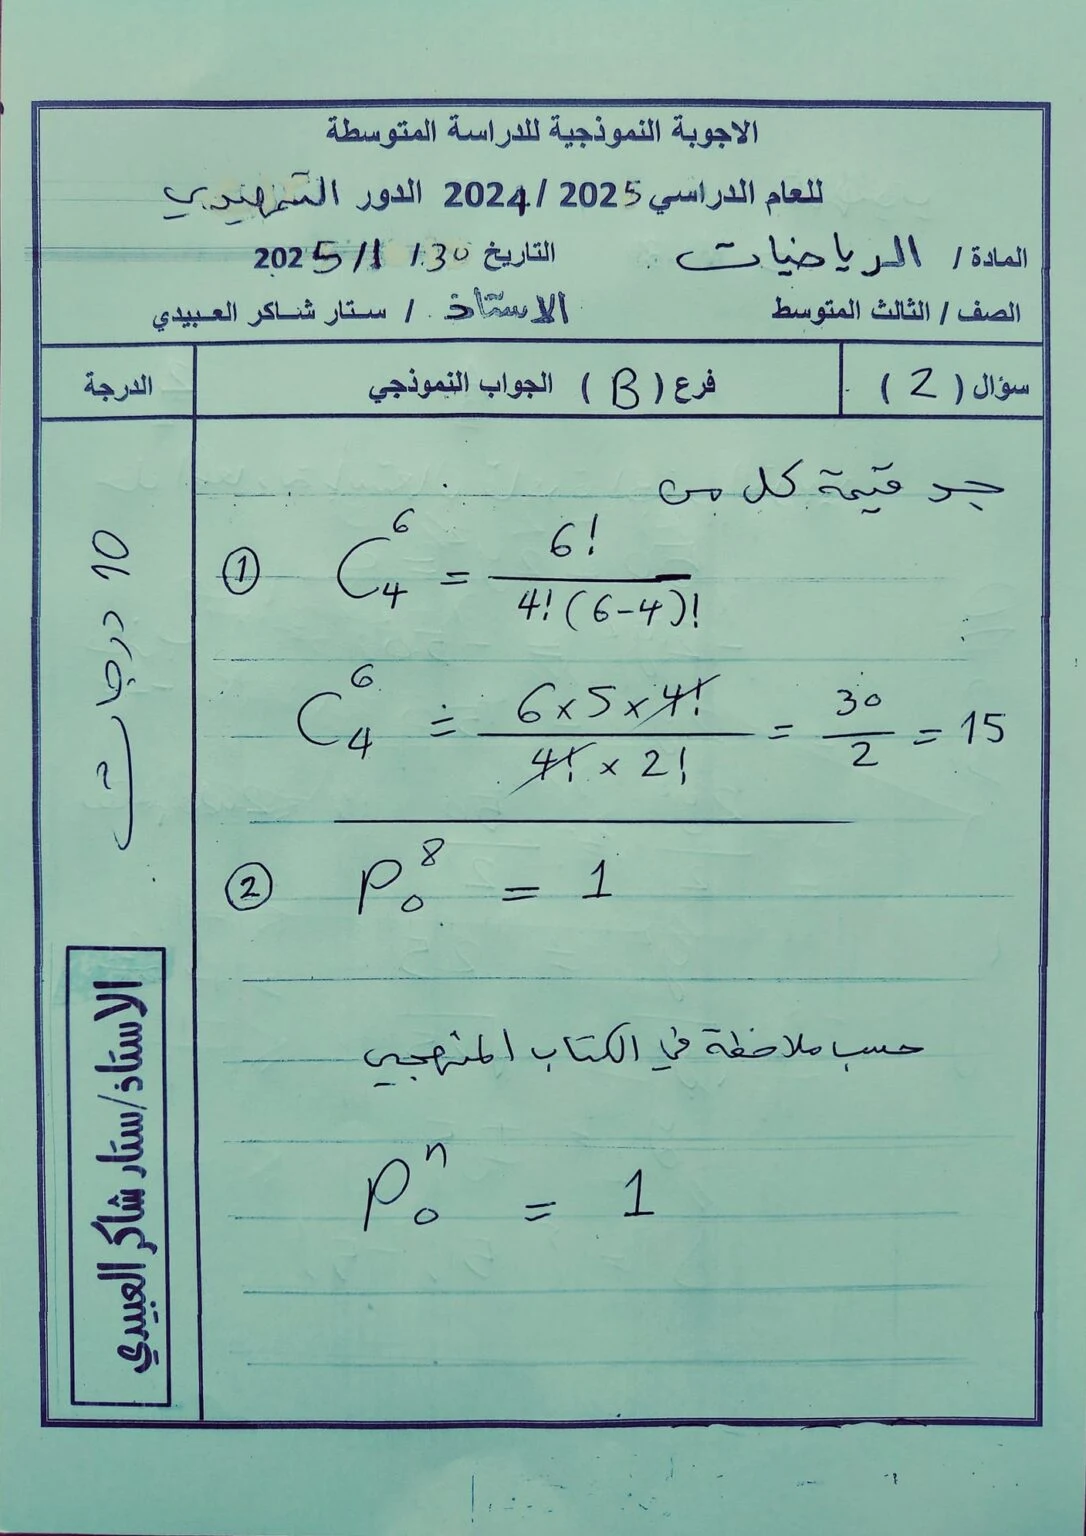 الاجوبة النموذجية للدراسة المتوسطة
للعام الدراسي 2025 / 2024 الدور التمهيدي
المادة / الرياضيات التاريخ 30 / 1 / 2025
الصف / الثالث المتوسط الاستاذ / ستار شاكر العبيدي
سؤال ( 2 ) فرع ( B ) الجواب النموذجي الدرجة
جد قيمة كل من
① C⁶₄ = 6! / 4! (6-4)!
C⁶₄ = 6 x 5 x 4! / 4! x 2! = 30 / 2 = 15
② P⁸₀ = 1
حسب ملاحظة في الكتاب المنهجي
Pⁿ₀ = 1
10 درجات
الاستاذ/ستار شاكر العبيدي